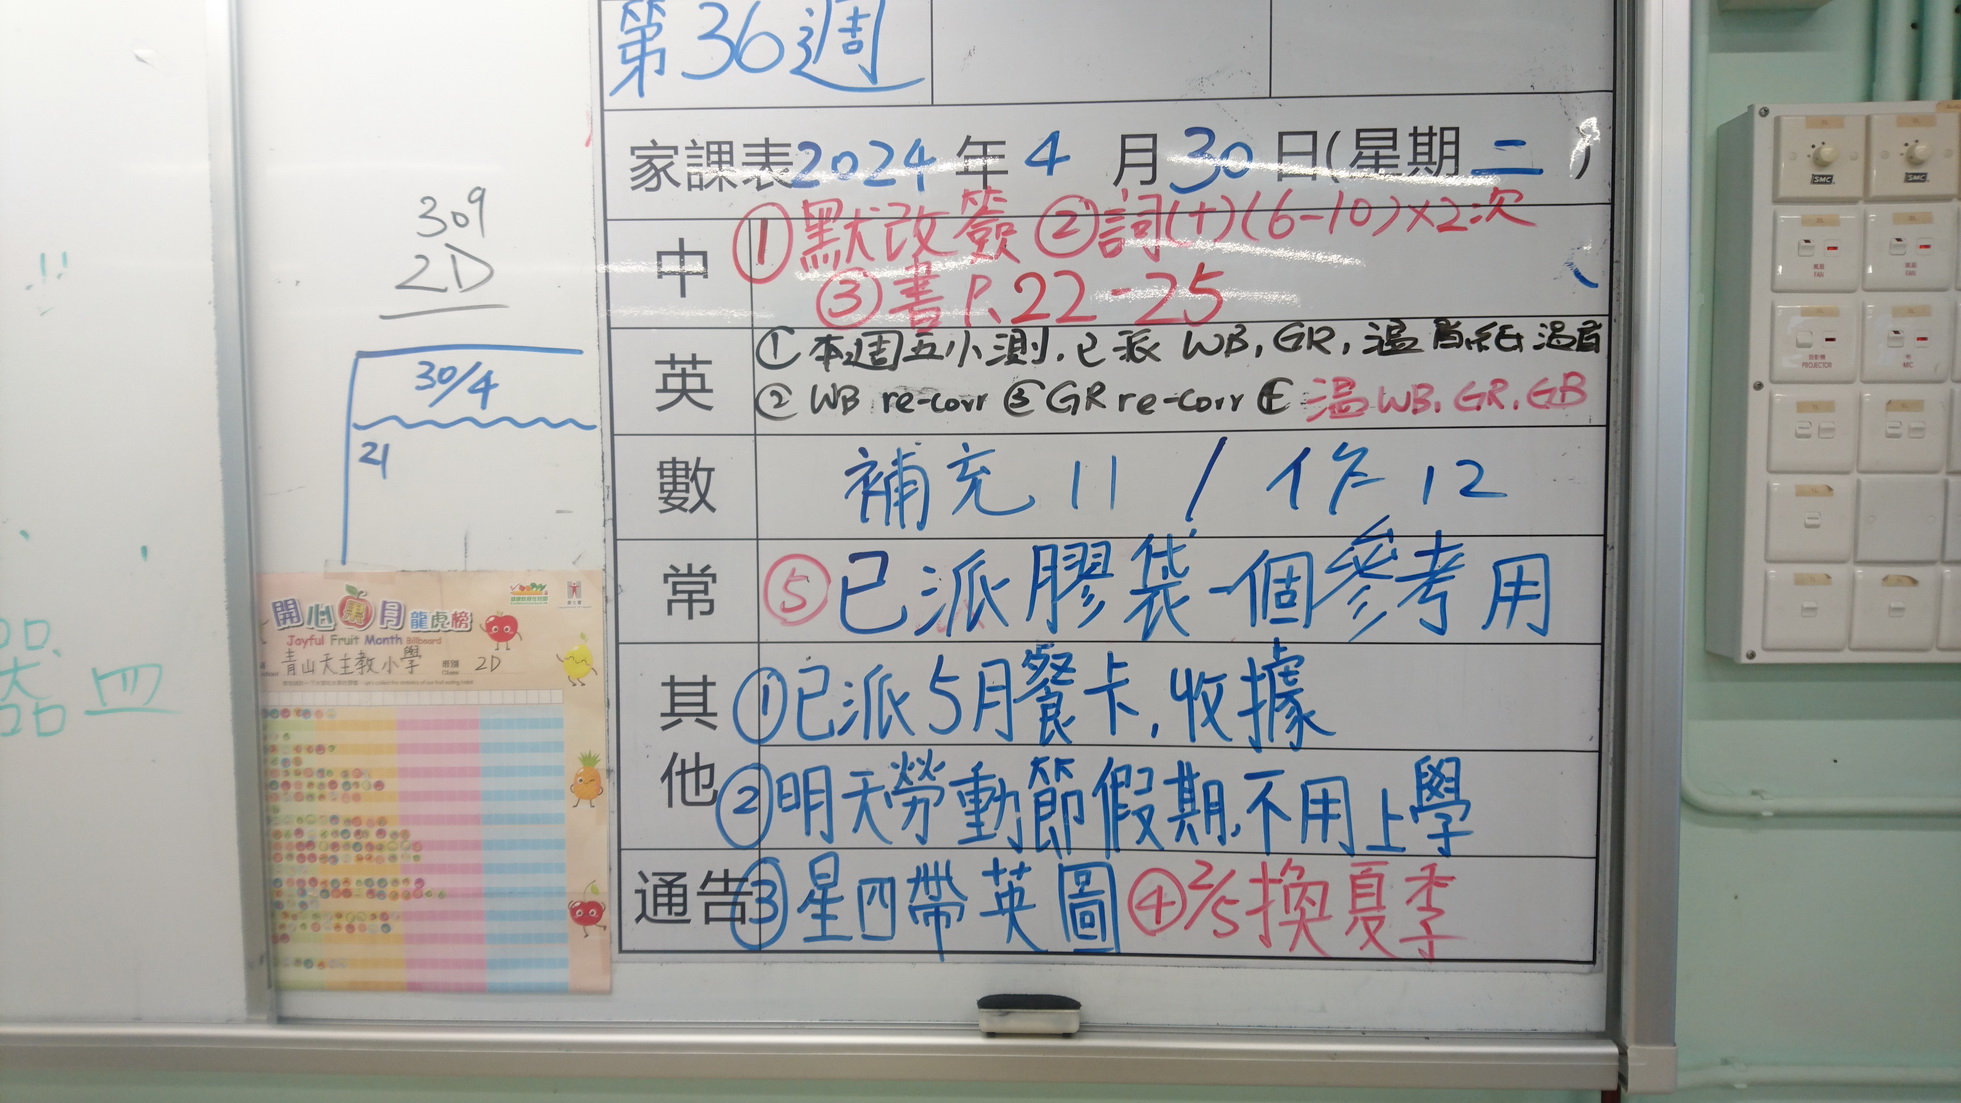 第36週
家課表2024年4月30日(星期二)
中
①默改簽 ②詞(十)(6-10)×2次
③書P.22-25
英
①本週五小測,已派 WB, GR, 溫習紙溫習
② WB re-corr ③ GR re-corr ④ 溫WB, GR, GB
數
補充 11 / 作 12
常
⑤已派膠袋一個參考用
其他
①已派5月餐卡,收據
②明天勞動節假期,不用上學
通告
③星四帶英圖 ④2/5換夏季
309
2D
30/4
21
開心果月龍虎榜
Joyful Fruit Month Billboard
青山天主教小學
班別 Class 2D
!!
四
SMC
SMC
FAN
FAN
投影機
PROJECTOR
MIC